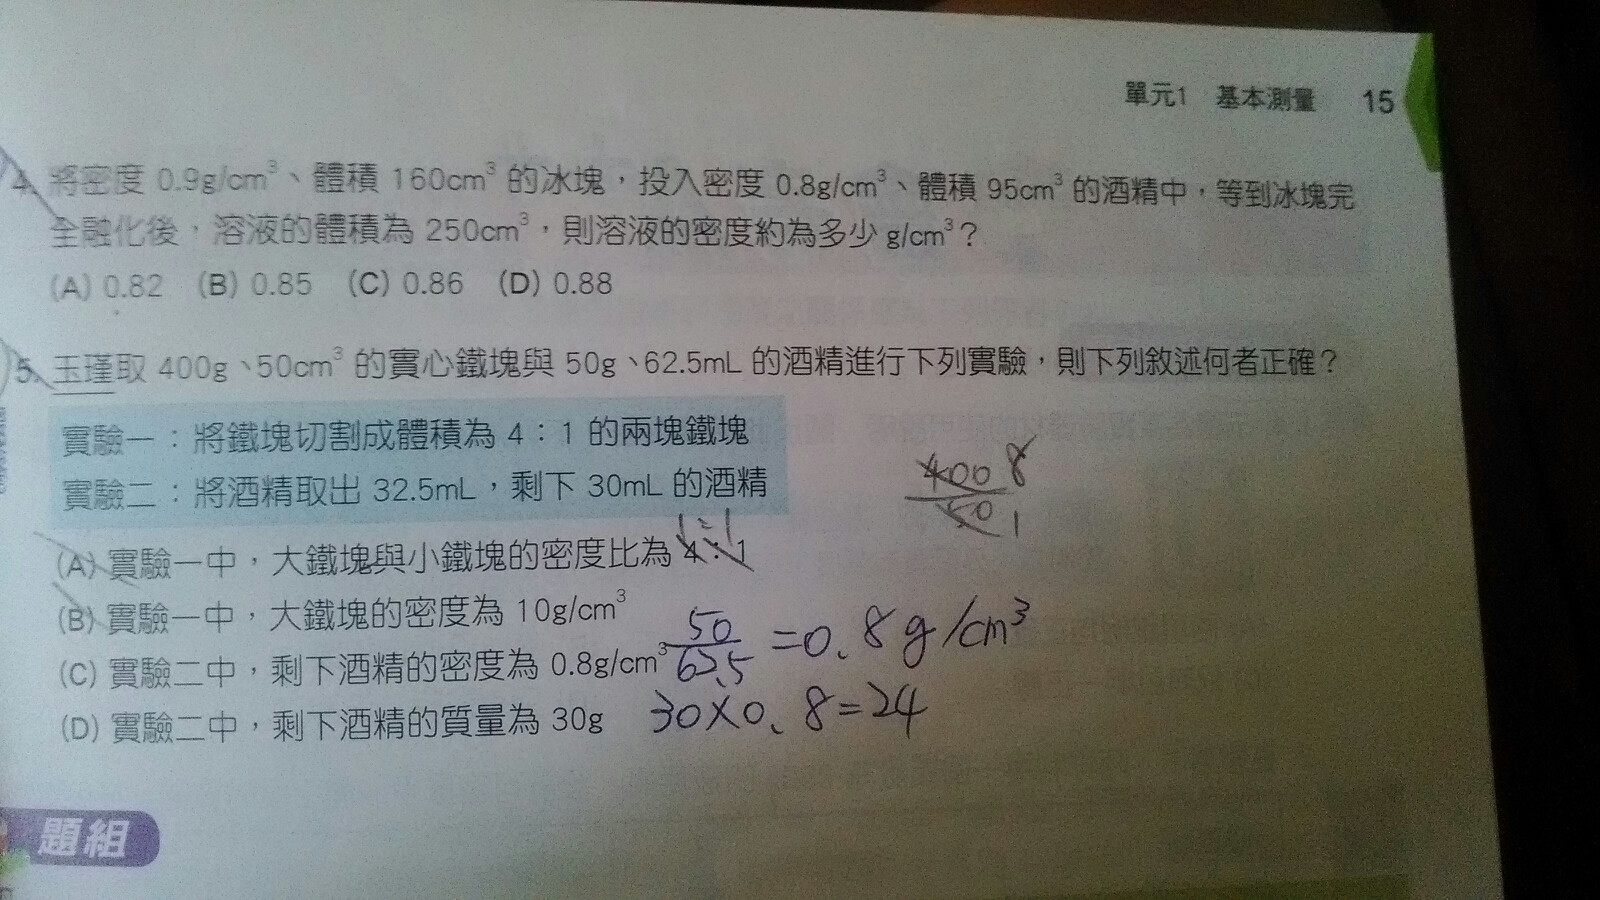 單元1 基本測量 15
4. 將密度 0.9g/cm³、體積 160cm³ 的冰塊，投入密度 0.8g/cm³、體積 95cm³ 的酒精中，等到冰塊完
全融化後，溶液的體積為 250cm³，則溶液的密度約為多少 g/cm³？
(A) 0.82 (B) 0.85 (C) 0.86 (D) 0.88
5. 玉瑾取 400g、50cm³ 的實心鐵塊與 50g、62.5mL 的酒精進行下列實驗，則下列敘述何者正確？
實驗一：將鐵塊切割成體積為 4：1 的兩塊鐵塊
實驗二：將酒精取出 32.5mL，剩下 30mL 的酒精
400 8
50 1
1:1
(A) 實驗一中，大鐵塊與小鐵塊的密度比為 4：1
(B) 實驗一中，大鐵塊的密度為 10g/cm³
(C) 實驗二中，剩下酒精的密度為 0.8g/cm³ 50/62.5 =0.8g/cm³
(D) 實驗二中，剩下酒精的質量為 30g 30×0.8=24
題組